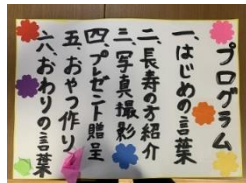 プログラム
一、はじめの言葉
二、長寿の方紹介
三、写真撮影
四、プレゼント贈呈
五、おやつ作り
六、おわりの言葉